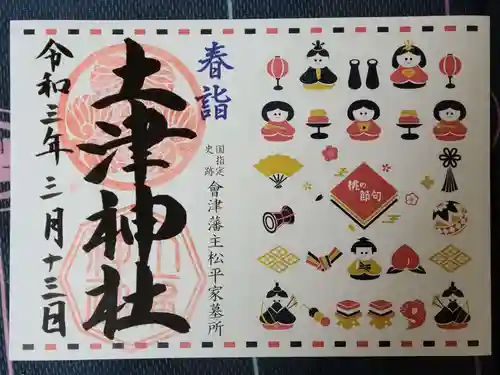 春詣
国指定
史跡
會津藩主松平家墓所
土津神社
令和三年三月十三日
桃の
節句